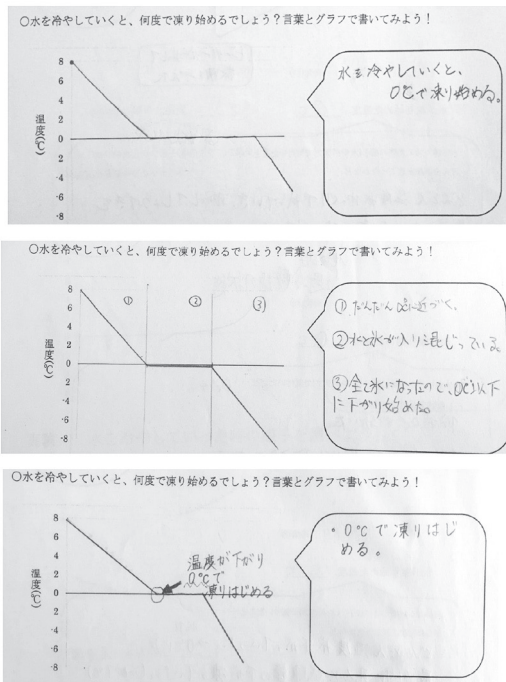 ○水を冷やしていくと、何度で凍り始めるでしょう？言葉とグラフで書いてみよう！
8
6
4
2
0
-2
-4
-6
-8
温度(℃)
水を冷やしていくと、
0℃で凍り始める。
○水を冷やしていくと、何度で凍り始めるでしょう？言葉とグラフで書いてみよう！
8
6
4
2
0
-2
-4
-6
-8
温度(℃)
① ② ③
①だんだん0℃に近づく。
②水と氷が入り混じっている。
③全て氷になったので、0℃以下
に下がり始めた。
○水を冷やしていくと、何度で凍り始めるでしょう？言葉とグラフで書いてみよう！
8
6
4
2
0
-2
-4
-6
-8
温度(℃)
温度が下がり
0℃で
凍りはじめる
・0℃で凍りはじ
める。